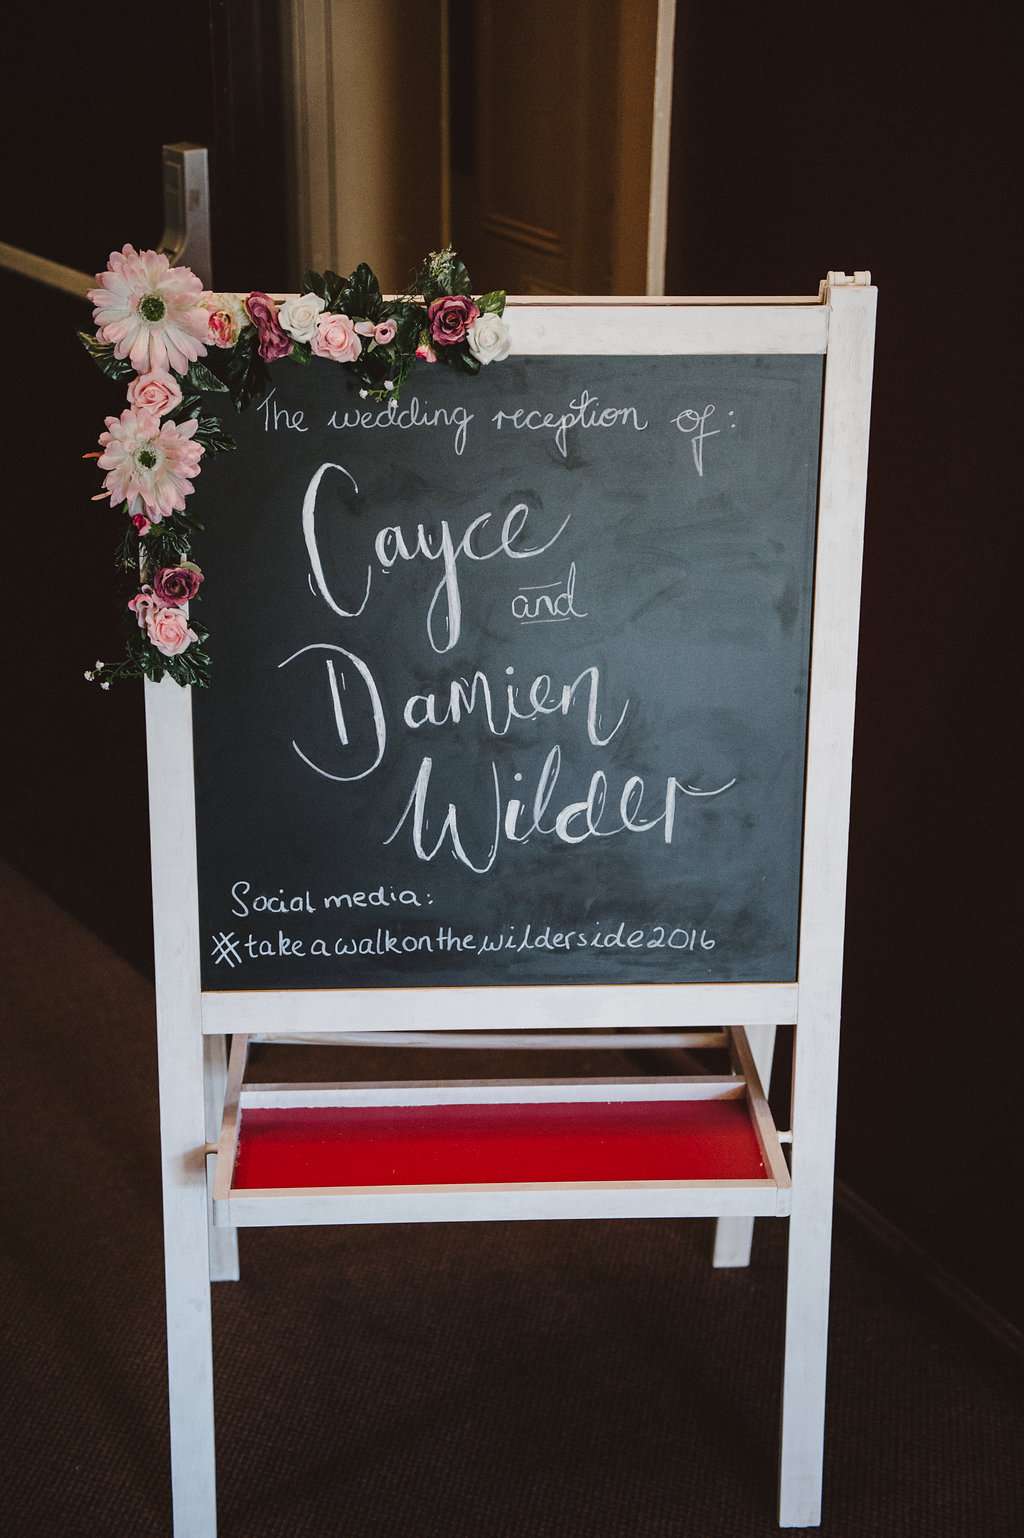 The wedding reception of:
Cayce
and
Damien
Wilder
Social media:
#takeawalkonthewilderside2016